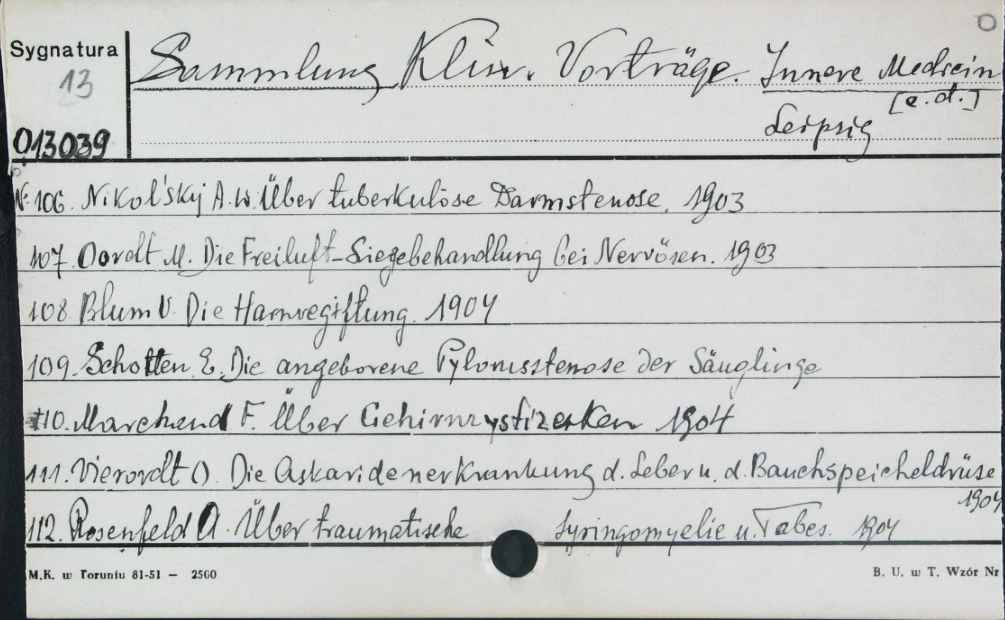 Sygnatura
13
013039
Sammlung Klin. Vorträge. Innere Medicin
[e.d.]
Leipzig
N. 106. Nikol'skij A. W. Über tuberkulöse Darmstenose. 1903
107. Oordt M. Die Freiluft-Liegebehandlung bei Nervösen. 1903
108. Blum V. Die Harnvegiftung. 1904
109. Schotten E. Die angeborene Pylorusstenose der Säuglinge
110. Marchand F. Über Gehirnzystizerken 1904
111. Vierordt O. Die Askaridenerkrankung d. Leber u. d. Bauchspeicheldrüse
1904
112. Rosenfeld A. Über traumatische Syringomyelie u. Tabes. 1904
M.K. w Toruniu 81-51 — 2500
B. U. w T. Wzór Nr